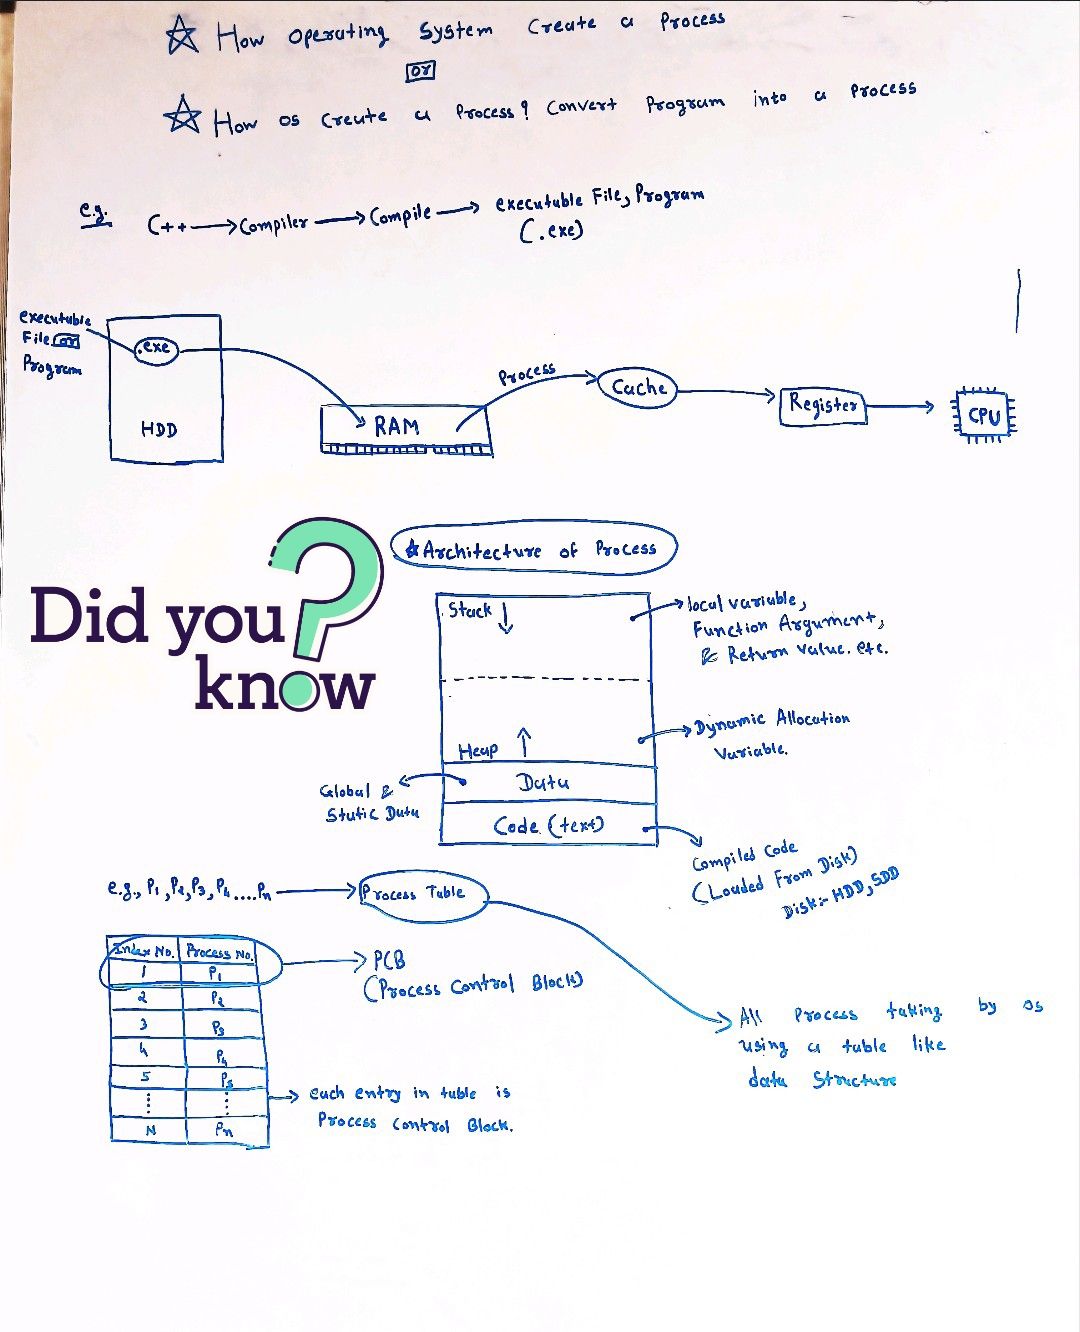 ☆ How operating System Create a Process
or
☆ How os Create a Process? Convert Program into a Process
e.g. C++ → Compiler → Compile → executable File, Program
(.exe)
executable
File or
Program
.exe
HDD
RAM
Process
Cache
Register
CPU
Did you know?
☆ Architecture of Process
Stack ↓
local variable,
Function Argument,
& Return value. etc.
Heap ↑
Dynamic Allocation
Variable.
Data
Global &
Static Data
Code (text)
Compiled Code
(Loaded From Disk)
Disk:- HDD, SDD
e.g., P1, P2, P3, P4 .... Pn → Process Table
Index No. Process No.
1 P1
2 P2
3 P3
4 P4
5 P5
⋮ ⋮
N Pn
→ PCB
(Process Control Block)
→ each entry in table is
Process Control Block.
All Process taking by os
using a table like
data Structure